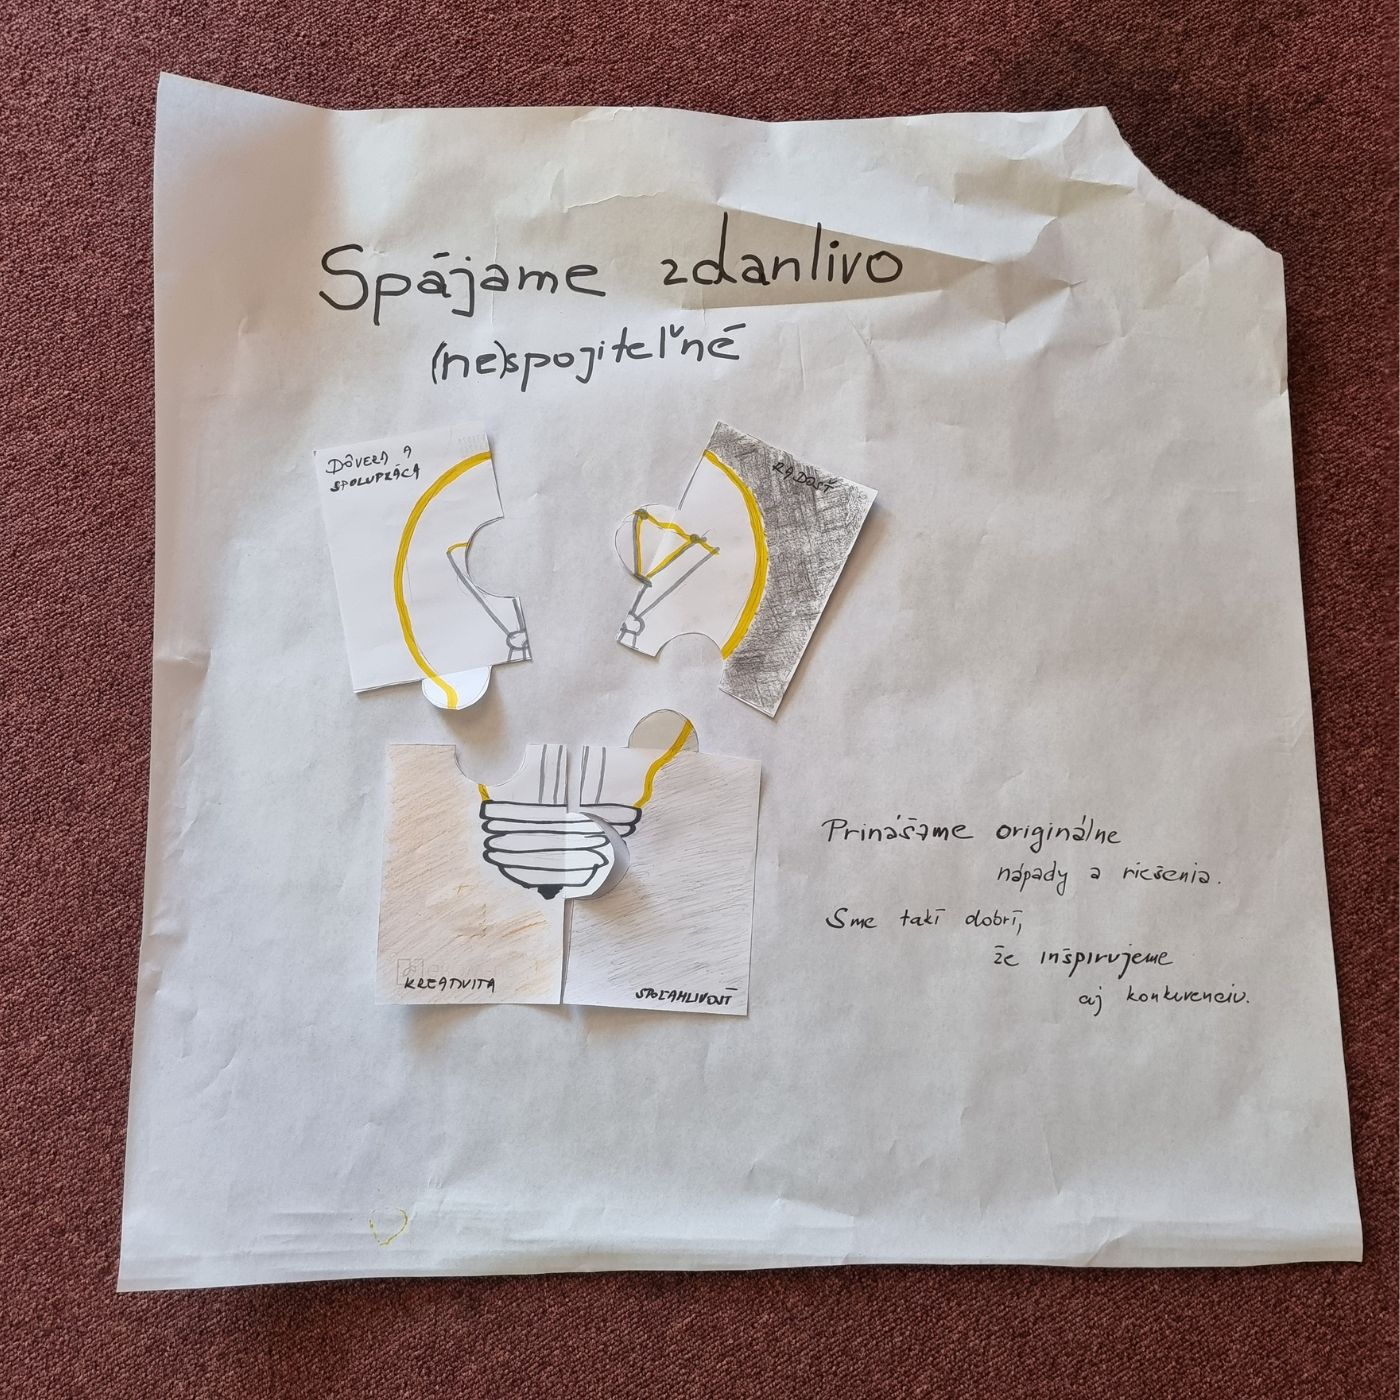 Spájame zdanlivo
(ne)spojiteľné
DÔVERA A
SPOLUPRÁCA
RADOSŤ
KREATIVITA
SPOĽAHLIVOSŤ
Prinášame originálne
nápady a riešenia.
Sme takí dobrí,
že inšpirujeme
aj konkurenciu.